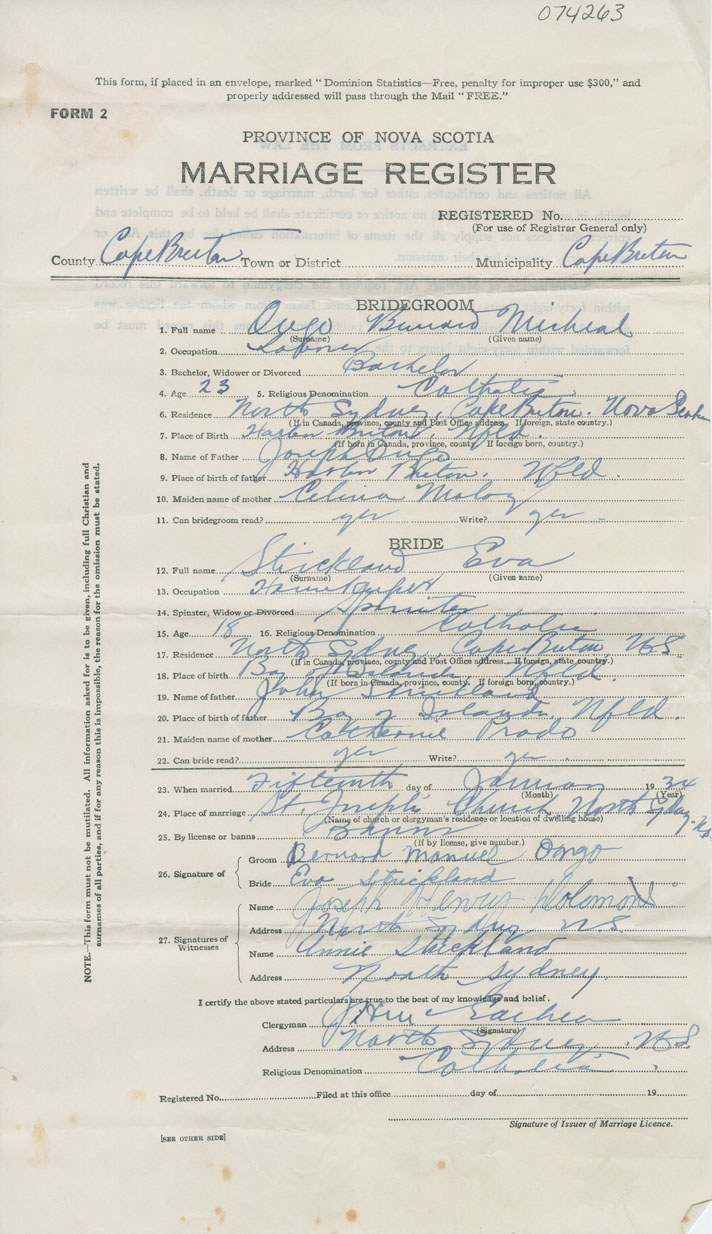 074263
This form, if placed in an envelope, marked "Dominion Statistics—Free, penalty for improper use $300," and
properly addressed will pass through the Mail "FREE."
FORM 2
PROVINCE OF NOVA SCOTIA
MARRIAGE REGISTER
REGISTERED No.
(For use of Registrar General only)
County Cape Breton Town or District Municipality Cape Breton
BRIDEGROOM
1. Full name Bernard Micheal
(Surname) (Given name)
2. Occupation Laborer
3. Bachelor, Widower or Divorced Bachelor
4. Age 23 5. Religious Denomination Catholic
6. Residence North Sydney, Cape Breton. Nova Scotia
(If in Canada, province, county and Post Office address. If foreign, state country.)
7. Place of Birth Harbor Breton, Nfld.
(If born in Canada, province, county. If foreign born, country.)
8. Name of Father Joseph
9. Place of birth of father Harbor Breton. Nfld.
10. Maiden name of mother Celina
11. Can bridegroom read? yes Write? yes
BRIDE
12. Full name Strickland Eva
(Surname) (Given name)
13. Occupation Housekeeper
14. Spinster, Widow or Divorced Spinster
15. Age 18 16. Religious Denomination Catholic
17. Residence North Sydney, Cape Breton, N.S.
(If in Canada, province, county and Post Office address. If foreign, state country.)
18. Place of birth Bay of Islands, Nfld.
(If born in Canada, province, county. If foreign born, country.)
19. Name of father John Strickland
20. Place of birth of father Bay of Islands, Nfld.
21. Maiden name of mother Catherine
22. Can bride read? yes Write? yes
23. When married Fifteenth day of January 1934
(Month) (Year)
24. Place of marriage St. Joseph's Church, North Sydney, N.S.
(Name of church or clergyman's residence or location of dwelling house)
25. By license or banns Banns
(If by license, give number.)
26. Signature of
Groom Bernard Manuel
Bride Eva Strickland
27. Signatures of Witnesses
Name Joseph
Address North Sydney N.S.
Name Annie Strickland
Address North Sydney
I certify the above stated particulars are true to the best of my knowledge and belief.
Clergyman
(Signature)
Address North Sydney, N.S.
Religious Denomination Catholic
Registered No. Filed at this office day of 19
Signature of Issuer of Marriage Licence.
[SEE OTHER SIDE]
NOTE.—This form must not be mutilated. All information asked for is to be given, including full Christian and
surnames of all parties, and if for any reason this is impossible, the reason for the omission must be stated.